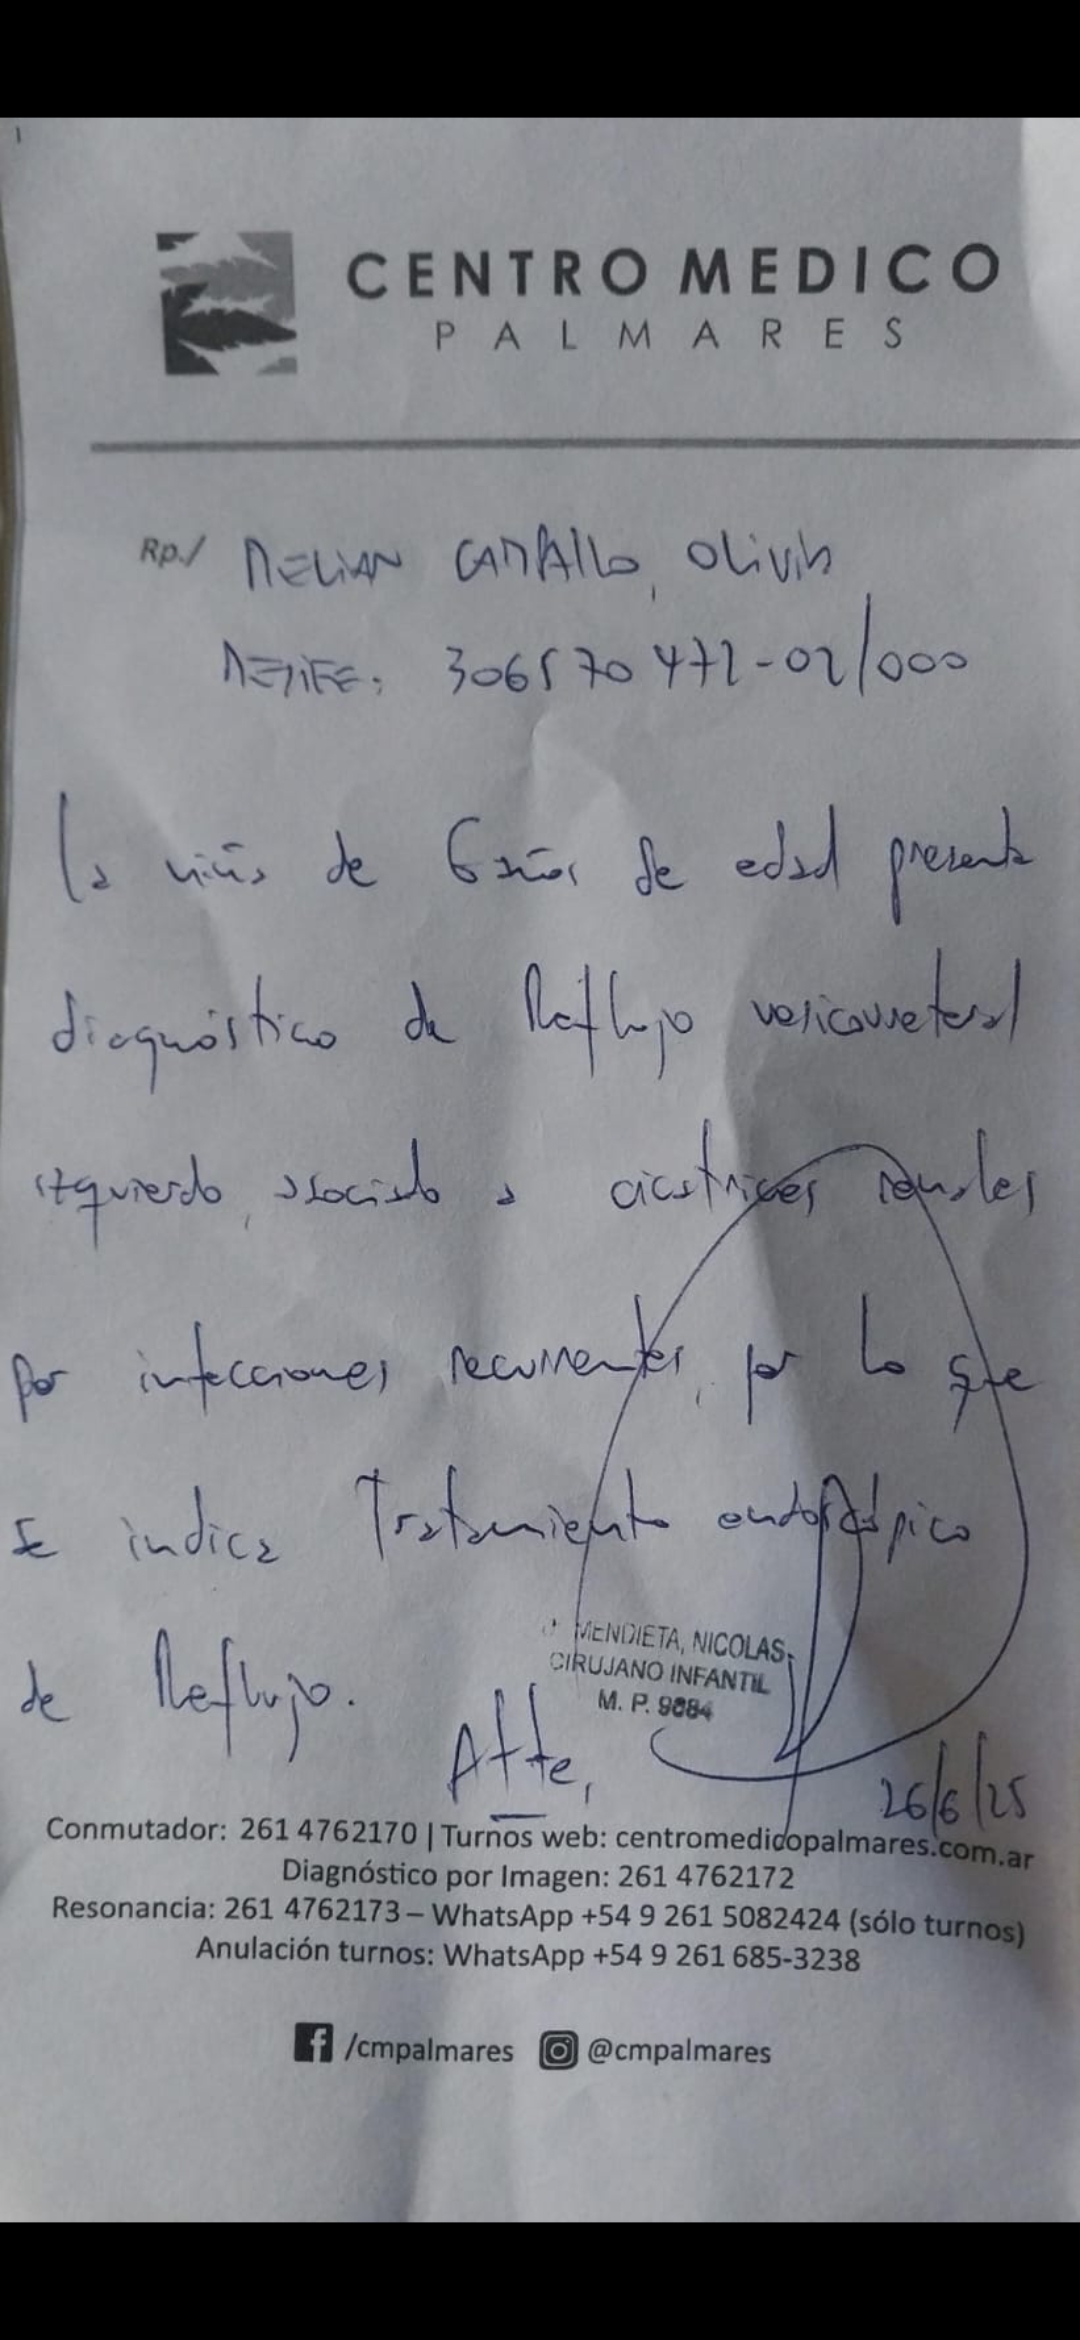 CENTRO MEDICO
PALMARES
Rp./ MELIAN CAMPALLO, Olivia
MEDIFE: 306570472-02/000
La niña de 6 años de edad presenta
diagnóstico de Reflujo vesicoureteral
izquierdo, asociado a cicatrices renales
por infecciones recurrentes, por lo que
se indica Tratamiento endoscópico
de Reflujo.
MENDIETA, NICOLAS
CIRUJANO INFANTIL
M. P. 9884
Atte,
26/6/25
Conmutador: 261 4762170 | Turnos web: centromedicopalmares.com.ar
Diagnóstico por Imagen: 261 4762172
Resonancia: 261 4762173 – WhatsApp +54 9 261 5082424 (sólo turnos)
Anulación turnos: WhatsApp +54 9 261 685-3238
/cmpalmares @cmpalmares